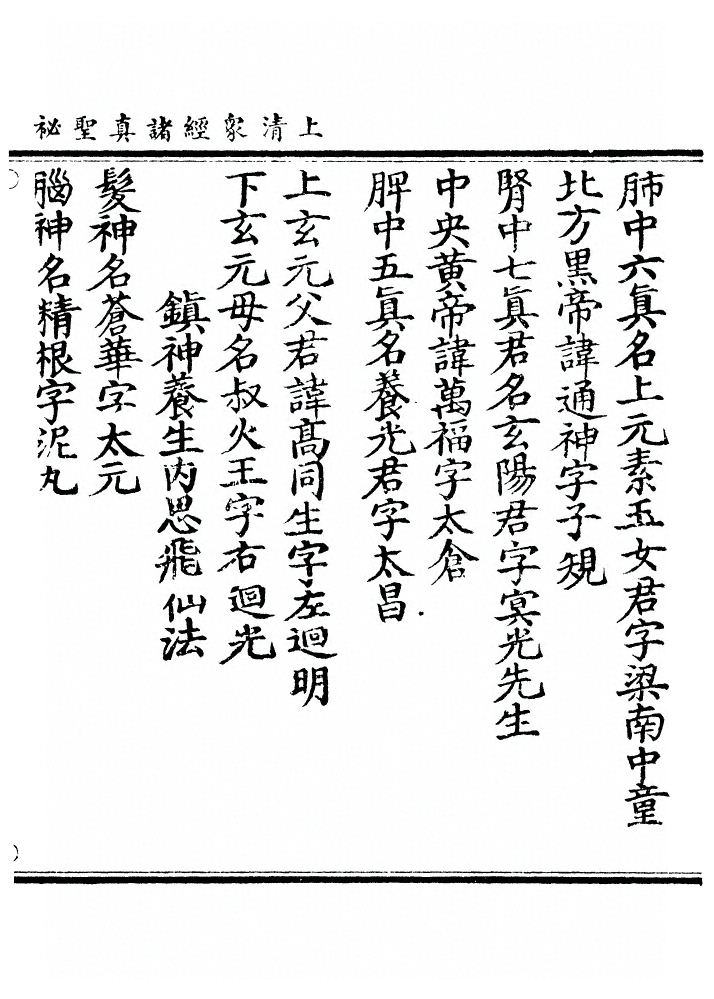 上清衆經諸真聖祕
肺中六眞名上元素玉女君字梁南中童
北方黑帝諱通神字子規
腎中七眞君名玄陽君字冥光先生
中央黃帝諱萬福字太倉
脾中五眞名養光君字太昌
上玄元父君諱高同生字左迴明
下玄元母名叔火王字右迴光
鎮神養生內思飛仙法
髮神名蒼華字太元
腦神名精根字泥丸